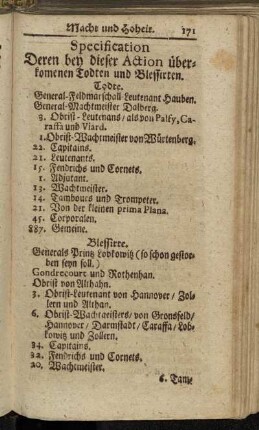 Macht und Hoheit. 171
Specification
Deren bey dieser Action über-
komenen Todten und Blessirten.
Todte.
General-Feldmarschall-Leutenant Hauben.
General-Wachtmeister Dalberg.
3. Obrist-Leutenans / als von Palfy, Ca-
raffa und Viard.
1. Obrist-Wachtmeister von Würtenberg.
22. Capitains.
21. Leutenants.
15. Fendrichs und Cornets.
1. Adjutant.
13. Wachtmeister.
14. Tambours und Trompeter.
21. Von der kleinen prima Plana.
45. Corporalen.
887. Gemeine.
Blessirte.
Generals Printz Lovkowitz (so schon gestor-
den seyn soll.)
Gondrecourt und Rothenhan.
Obrist von Althahn.
3. Obrist-Leutenant von Hannover / Zol-
lern und Althan.
6. Obrist-Wachtmeisters / von Gronsfeld /
Hannover / Darmstadt / Caraffa / Lob-
kowitz und Zollern.
34. Capitains.
32. Fendrichs und Cornets.
20. Wachtmeister.
6. Tam-